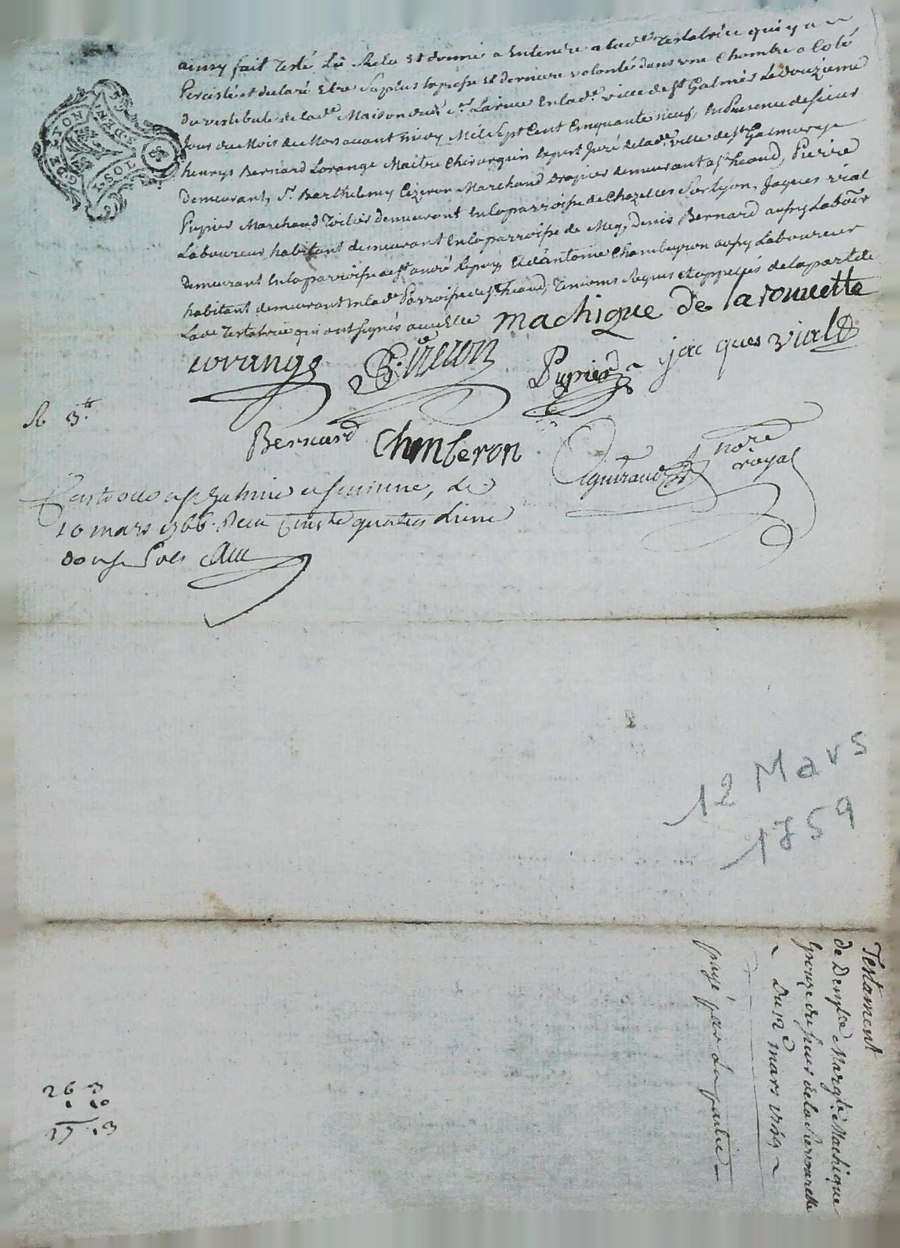 ainsy fait Testé Lû Relu et donné a Entendre a lade Testatrice qui y a
Percisté et declaré Etre Sa plus Expresse et derniere volonté dans une Chambre a Coté
Du vestibule de lade Maison dud. Sr. Larue En lade. ville de St Galmier Le douzieme
Jour du Mois de Mars avant midy Mil Sept Cent Cinquante neuf, En Presence de Sieur
henrys Bernard Lorange Maitre Chirurgien Expert Juré de lade. ville de St Galmier y
demeurant, Sr. Barthelemy Cizeron Marchand Drapier demeurant a St heand, Pierre
Pupier Marchand Toilier demeurant En la parroisse de Chazelles Sur Lyon, Jaques vial
Laboureur habitant demeurant En la parroisse de denis Bernard aussy Labour
demeurant En la parroisse de St andré Lepuy Et d'antoine Chambeyron aussy Laboureur
habitant demeurant En lade. Parroisse de St heand, Temoins Requis et appellés de la part de
Lade Testatrice qui ont Signés avec Elle machique de la
Lorange B. Cizeron Pupier jacques vial
R 3tt
Bernard Chamberon
Guiraud Nore royal
Controllé a St galmier en le
10 mars 1766. Reçu quatre Livres
douze Sols
12 Mars
1759
Testament
de Demlle Margte Machique
Epouze du Sieur de la
Du 12 mars 1759
payé par la partie
26 3
1 10
27 13